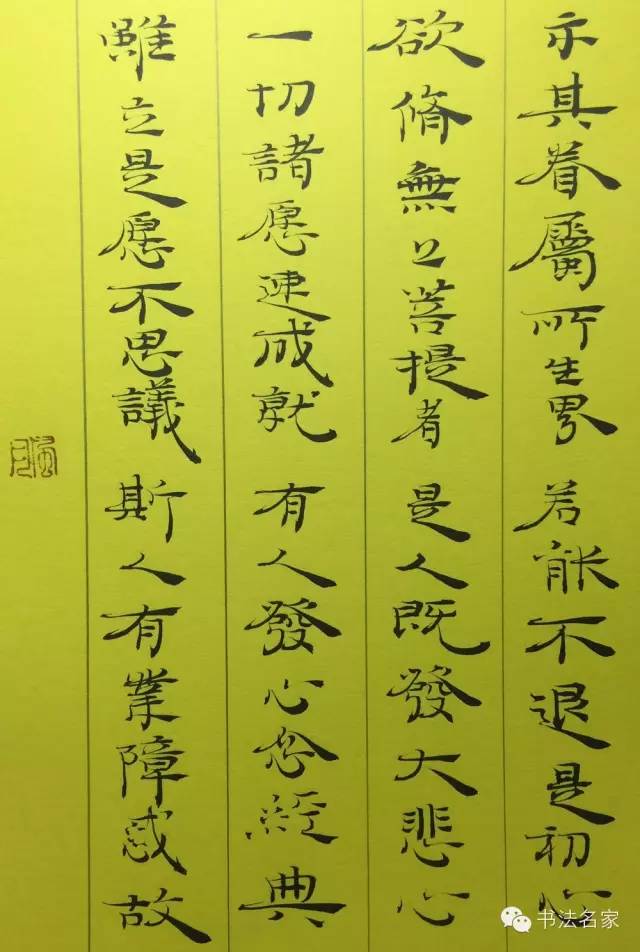 示其眷屬所生界 若能不退是初心
欲脩無上菩提者 是人既發大悲心
一切諸愿速成就 有人發心念經典
雖立是愿不思議 斯人有業障惑故
书法名家